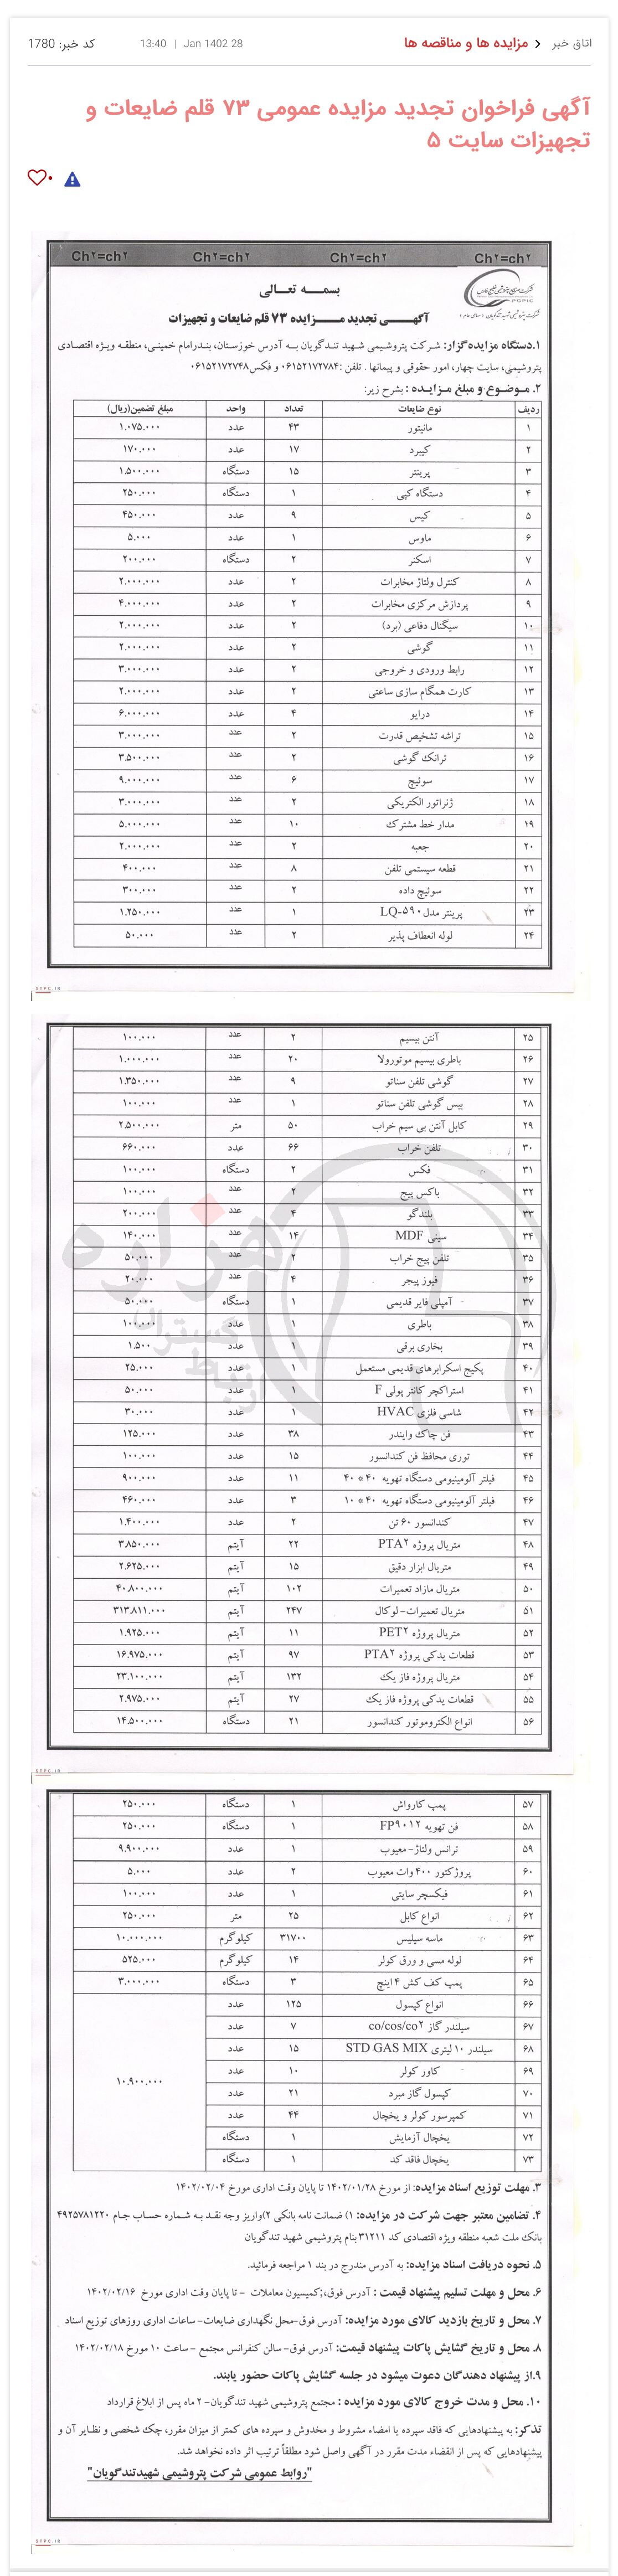 اتاق خبر > مزایده ها و مناقصه ها
28 Jan 1402 | 13:40
کد خبر: 1780
آگهی فراخوان تجدید مزایده عمومی ۷۳ قلم ضایعات و
تجهیزات سایت ۵
Ch۲=ch۲ Ch۲=ch۲ Ch۲=ch۲ Ch۲=ch۲
بسمـــه تعـــالی
شرکت صنایع پتروشیمی خلیج فارس
PGPIC
شرکت پتروشیمی شهید تندگویان (سهامی عام)
آگهـــی تجدید مـــزایده ۷۳ قلم ضایعات و تجهیزات
۱.دستگاه مزایده‌گزار: شرکت پتروشیمی شهید تندگویان به آدرس خوزستان، بندرامام خمینی، منطقه ویژه اقتصادی
پتروشیمی، سایت چهار، امور حقوقی و پیمانها . تلفن :۰۶۱۵۲۱۷۲۷۸۴ و فکس۰۶۱۵۲۱۷۲۷۴۸
۲. موضـوع و مبلغ مـزایـده : بشرح زیر:
ردیف نوع ضایعات تعداد واحد مبلغ تضمین(ریال)
۱ مانیتور ۴۳ عدد ۱.۰۷۵.۰۰۰
۲ کیبرد ۱۷ عدد ۱۷۰.۰۰۰
۳ پرینتر ۱۵ دستگاه ۱.۵۰۰.۰۰۰
۴ دستگاه کپی ۱ دستگاه ۲۵۰.۰۰۰
۵ کیس ۹ عدد ۴۵۰.۰۰۰
۶ ماوس ۱ عدد ۵.۰۰۰
۷ اسکنر ۲ دستگاه ۲۰۰.۰۰۰
۸ کنترل ولتاژ مخابرات ۲ عدد ۲.۰۰۰.۰۰۰
۹ پردازش مرکزی مخابرات ۲ عدد ۴.۰۰۰.۰۰۰
۱۰ سیگنال دفاعی (برد) ۲ عدد ۲.۰۰۰.۰۰۰
۱۱ گوشی ۲ عدد ۲.۰۰۰.۰۰۰
۱۲ رابط ورودی و خروجی ۲ عدد ۳.۰۰۰.۰۰۰
۱۳ کارت همگام سازی ساعتی ۲ عدد ۲.۰۰۰.۰۰۰
۱۴ درایو ۴ عدد ۶.۰۰۰.۰۰۰
۱۵ تراشه تشخیص قدرت ۲ عدد ۳.۰۰۰.۰۰۰
۱۶ ترانک گوشی ۲ عدد ۳.۵۰۰.۰۰۰
۱۷ سوئیچ ۶ عدد ۹.۰۰۰.۰۰۰
۱۸ ژنراتور الکتریکی ۲ عدد ۳.۰۰۰.۰۰۰
۱۹ مدار خط مشترک ۱۰ عدد ۵.۰۰۰.۰۰۰
۲۰ جعبه ۲ عدد ۲.۰۰۰.۰۰۰
۲۱ قطعه سیستمی تلفن ۸ عدد ۴۰۰.۰۰۰
۲۲ سوئیچ داده ۲ عدد ۳۰۰.۰۰۰
۲۳ پرینتر مدل LQ-۵۹۰ ۱ عدد ۱.۲۵۰.۰۰۰
۲۴ لوله انعطاف پذیر ۲ عدد ۵۰.۰۰۰
STPC.IR
۲۵ آنتن بیسیم ۲ عدد ۱۰۰.۰۰۰
۲۶ باطری بیسیم موتورولا ۲۰ عدد ۱.۰۰۰.۰۰۰
۲۷ گوشی تلفن سناتو ۹ عدد ۱.۳۵۰.۰۰۰
۲۸ بیس گوشی تلفن سناتو ۱ عدد ۱۰۰.۰۰۰
۲۹ کابل آنتن بی سیم خراب ۵۰ متر ۲.۵۰۰.۰۰۰
۳۰ تلفن خراب ۶۶ عدد ۶۶۰.۰۰۰
۳۱ فکس ۲ دستگاه ۱۰۰.۰۰۰
۳۲ باکس پیج ۲ عدد ۱۰۰.۰۰۰
۳۳ بلندگو ۴ عدد ۲۰۰.۰۰۰
۳۴ سینی MDF ۱۴ عدد ۱۴۰.۰۰۰
۳۵ تلفن پیج خراب ۲ عدد ۵۰.۰۰۰
۳۶ فیوز پیجر ۴ عدد ۲۰.۰۰۰
۳۷ آمپلی فایر قدیمی ۱ دستگاه ۵۰.۰۰۰
۳۸ باطری ۱ عدد ۱۰۰.۰۰۰
۳۹ بخاری برقی ۱ عدد ۱.۵۰۰
۴۰ پکیج اسکرابرهای قدیمی مستعمل ۱ عدد ۲۵.۰۰۰
۴۱ استراکچر کانتر پولی F ۱ عدد ۵۰.۰۰۰
۴۲ شاسی فلزی HVAC ۱ عدد ۳۰.۰۰۰
۴۳ فن چاک وایندر ۳۸ عدد ۱۲۵.۰۰۰
۴۴ توری محافظ فن کندانسور ۱۵ عدد ۱۰۰.۰۰۰
۴۵ فیلتر آلومینیومی دستگاه تهویه ۴۰*۴۰ ۱۱ عدد ۹۰۰.۰۰۰
۴۶ فیلتر آلومینیومی دستگاه تهویه ۴۰*۱۰ ۳ عدد ۴۶۰.۰۰۰
۴۷ کندانسور ۶۰ تن ۲ عدد ۱.۴۰۰.۰۰۰
۴۸ متریال پروژه PTA۲ ۲۲ آیتم ۳.۸۵۰.۰۰۰
۴۹ متریال ابزار دقیق ۱۵ آیتم ۲.۶۲۵.۰۰۰
۵۰ متریال مازاد تعمیرات ۱۰۲ آیتم ۴۰.۸۰۰.۰۰۰
۵۱ متریال تعمیرات-لوکال ۲۴۷ آیتم ۳۱۳.۸۱۱.۰۰۰
۵۲ متریال پروژه PET۲ ۱۱ آیتم ۱.۹۲۵.۰۰۰
۵۳ قطعات یدکی پروژه PTA۲ ۹۷ آیتم ۱۶.۹۷۵.۰۰۰
۵۴ متریال پروژه فاز یک ۱۳۲ آیتم ۲۳.۱۰۰.۰۰۰
۵۵ قطعات یدکی پروژه فاز یک ۲۷ آیتم ۲.۹۷۵.۰۰۰
۵۶ انواع الکتروموتور کندانسور ۲۱ دستگاه ۱۴.۵۰۰.۰۰۰
هزاره
STPC.IR
۵۷ پمپ کارواش ۱ دستگاه ۲۵۰.۰۰۰
۵۸ فن تهویه FP۹۰۱۲ ۱ دستگاه ۲۵۰.۰۰۰
۵۹ ترانس ولتاژ-معیوب ۱ عدد ۹.۹۰۰.۰۰۰
۶۰ پروژکتور ۴۰۰ وات معیوب ۲ عدد ۵.۰۰۰
۶۱ فیکسچر سایتی ۱ عدد ۱۰۰.۰۰۰
۶۲ انواع کابل ۲۵ متر ۲۵۰.۰۰۰
۶۳ ماسه سیلیس ۳۱۷۰۰ کیلوگرم ۱۰.۰۰۰.۰۰۰
۶۴ لوله مسی و ورق کولر ۱۴ کیلوگرم ۵۲۵.۰۰۰
۶۵ پمپ کف کش ۴ اینچ ۳ دستگاه ۳.۰۰۰.۰۰۰
۶۶ انواع کپسول ۱۲۵ عدد
۶۷ سیلندر گاز co/cos/co۲ ۷ عدد
۶۸ سیلندر ۱۰ لیتری STD GAS MIX ۱۵ عدد
۶۹ کاور کولر ۱۰ عدد
۷۰ کپسول گاز مبرد ۲۱ عدد ۱۰.۹۰۰.۰۰۰
۷۱ کمپرسور کولر و یخچال ۴۴ عدد
۷۲ یخچال آزمایش ۱ دستگاه
۷۳ یخچال فاقد کد ۱ دستگاه
۳. مهلت توزیع اسناد مزایده: از مورخ ۱۴۰۲/۰۱/۲۸ تا پایان وقت اداری مورخ ۱۴۰۲/۰۲/۰۴
۴. تضامین معتبر جهت شرکت در مزایده: ۱) ضمانت نامه بانکی ۲)واریز وجه نقد به شماره حساب جام ۴۹۲۵۷۸۱۲۲۰
بانک ملت شعبه منطقه ویژه اقتصادی کد ۳۱۲۱۱بنام پتروشیمی شهید تندگویان
۵. نحوه دریافت اسناد مزایده: به آدرس مندرج در بند ۱ مراجعه فرمائید.
۶. محل و مهلت تسلیم پیشنهاد قیمت : آدرس فوق،;کمیسیون معاملات - تا پایان وقت اداری مورخ ۱۴۰۲/۰۲/۱۶
۷. محل و تاریخ بازدید کالای مورد مزایده: آدرس فوق-محل نگهداری ضایعات- ساعات اداری روزهای توزیع اسناد
۸. محل و تاریخ گشایش پاکات پیشنهاد قیمت: آدرس فوق- سالن کنفرانس مجتمع - ساعت ۱۰ مورخ ۱۴۰۲/۰۲/۱۸
۹.از پیشنهاد دهندگان دعوت میشود در جلسه گشایش پاکات حضور یابند.
۱۰. محل و مدت خروج کالای مورد مزایده : مجتمع پتروشیمی شهید تندگویان- ۲ ماه پس از ابلاغ قرارداد
تذکر: به پیشنهادهایی که فاقد سپرده یا امضاء مشروط و مخدوش و سپرده های کمتر از میزان مقرر، چک شخصی و نظایر آن و
پیشنهادهایی که پس از انقضاء مدت مقرر در آگهی واصل شود مطلقاً ترتیب اثر داده نخواهد شد.
"روابط عمومی شرکت پتروشیمی شهیدتندگویان"
STPC.IR